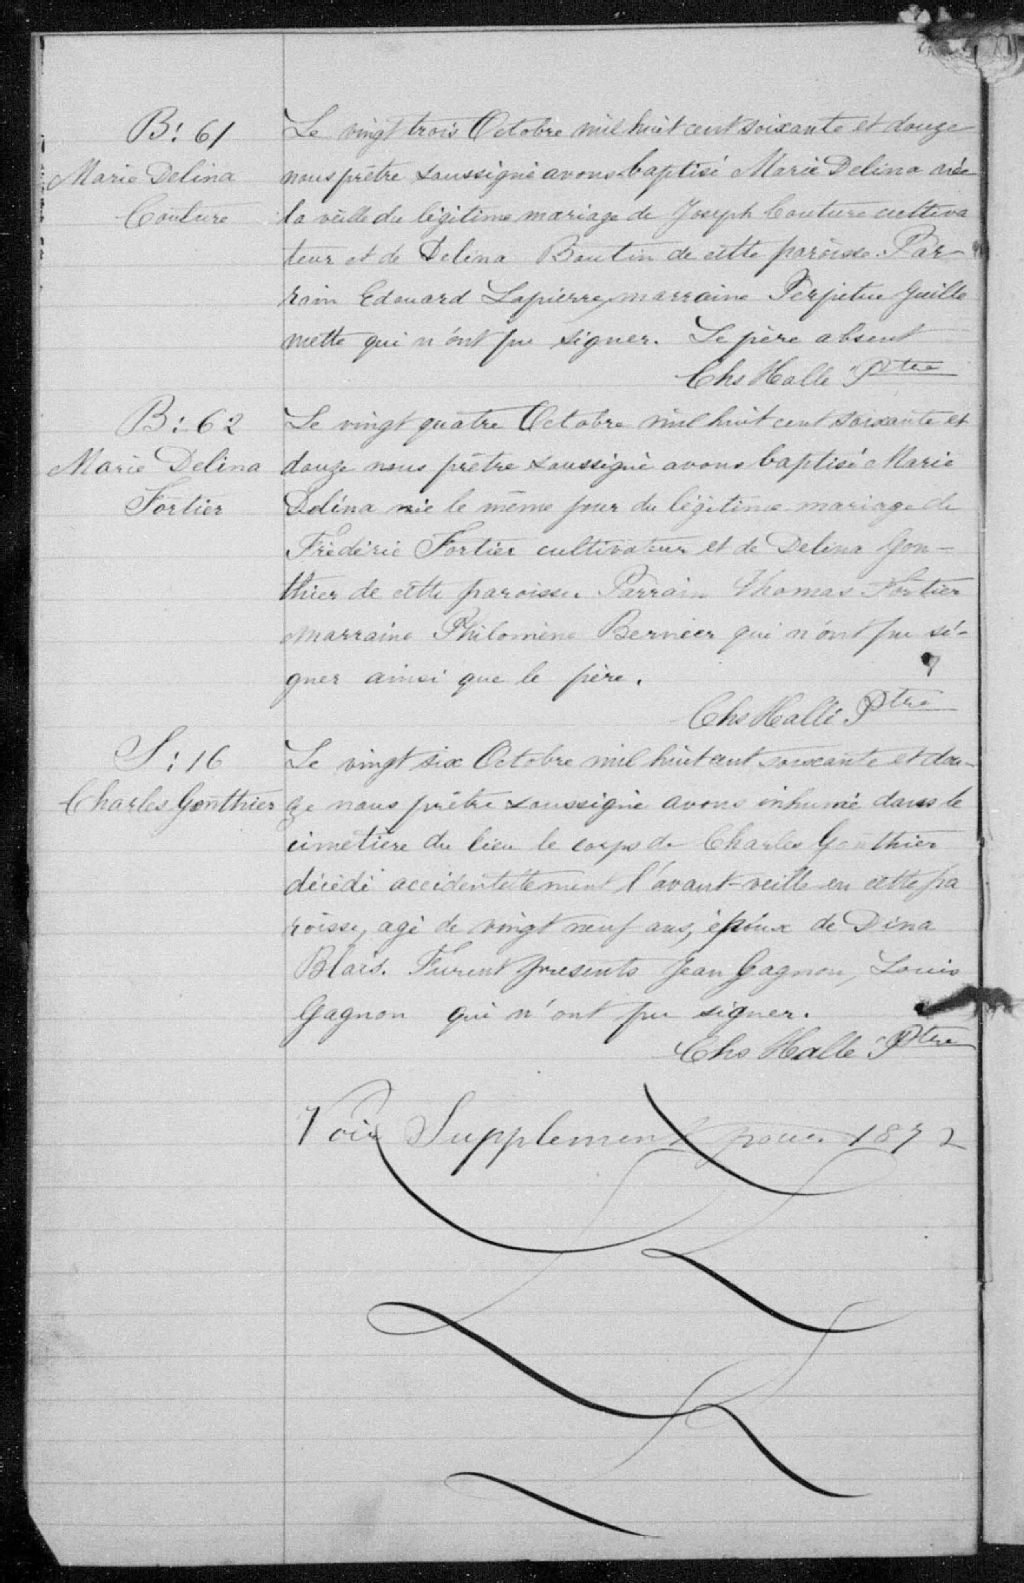 B: 61
Marie Delina
Couture
Le vingt trois Octobre mil huit cent soixante et douze
nous prêtre soussigné avons baptisé Marie Delina née
la veille du légitime mariage de Joseph Couture cultiva
teur et de Delina Boutin de cette paroisse. Par-
rain Edouard Lapierre, marraine Perpetue Guille
mette qui n'ont pu signer. Le père absent
Chs Halle Ptre
B: 62
Marie Delina
Fortier
Le vingt quatre Octobre mil huit cent soixante et
douze nous prêtre soussigné avons baptisé Marie
Delina née le même jour du légitime mariage de
Frédéric Fortier cultivateur et de Delina Gon-
thier de cette paroisse. Parrain Thomas Fortier
marraine Philomène Bernier qui n'ont pu si-
gner ainsi que le père.
Chs Hallé Ptre
S: 16
Charles Gonthier
Le vingt six Octobre mil huit cent soixante et dou-
ze nous prêtre soussigné avons inhumé dans le
cimetiere du lieu le corps de Charles Gonthier
décédé accidentellement l'avant-veille en cette pa
roisse, agé de vingt neuf ans, époux de Dina
Blais. Furent presents Jean Gagnon, Louis
Gagnon qui n'ont pu signer.
Chs Halle Ptre
Voir Supplement pour 1872